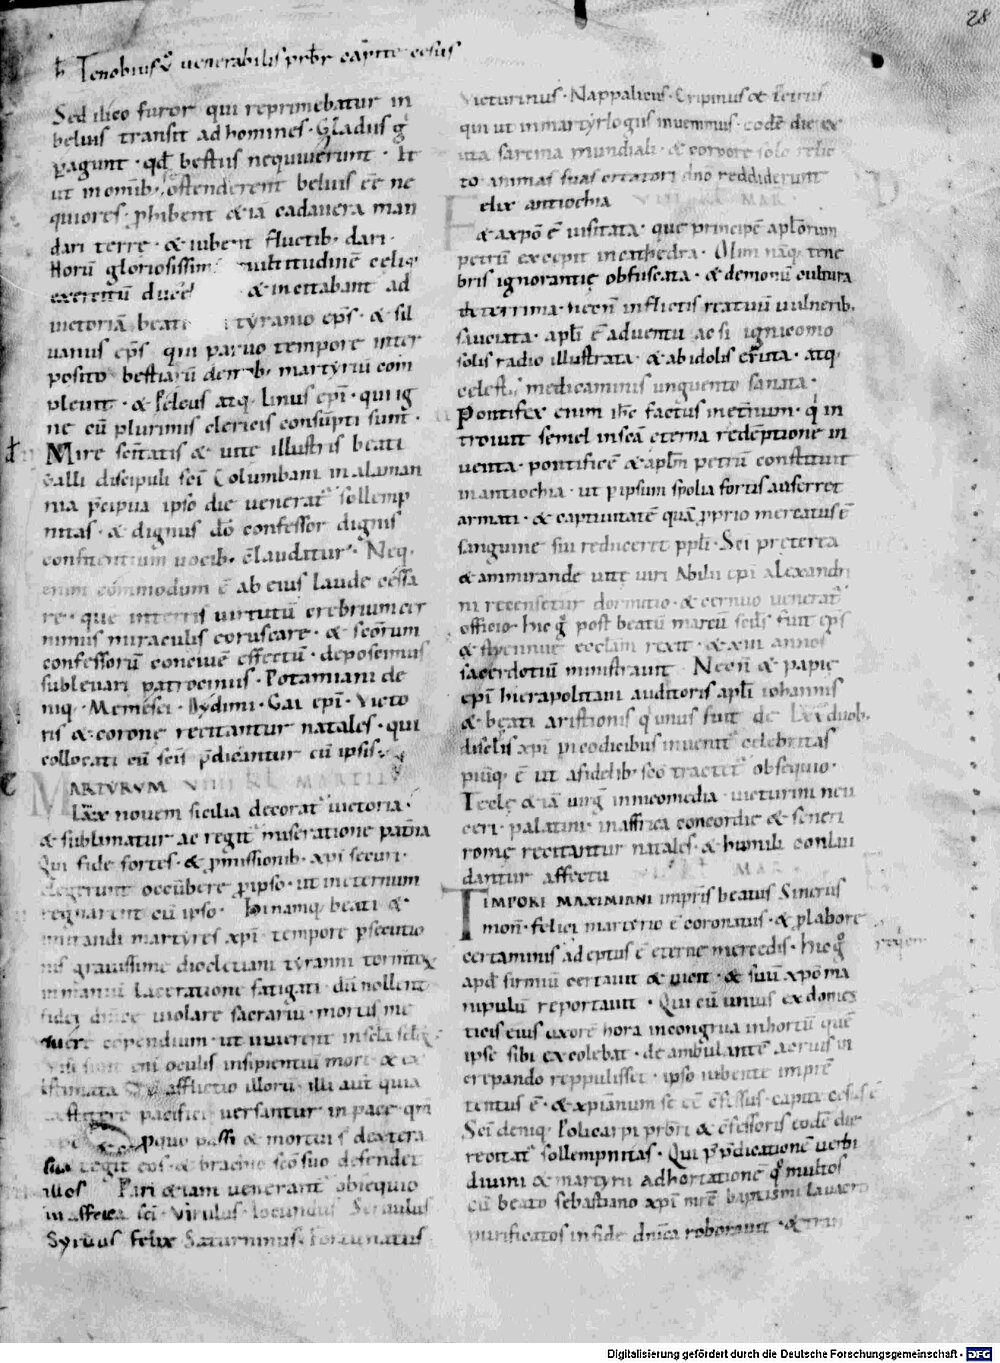 28
Tenobius q venerabilis prbr capite cesus
Sed ilico furor qui reprimebatur in
beluis transit ad homines · Gladiis g̃
pagunt · qđ bestiis nequiverunt · Et
ut in omnib; ostenderent beluis ēē ne
quiores · phibent & iā cadavera man
dari terre · & iubent fluctib; dari ·
Horū gloriosissim multitudinē celiq;
exercitū & incitabant ad
victoriā beati tyranio ep̄s · & sil
vanus ep̄s · qui parvo tempore inter
posito bestiarū dentib; martyriū com
plevit · & Peleus atq; Linus ep̄i · qui ig
ne cū plurimis clericis consūpti sunt ·
Mire sc̄itatis & vite illustris beati
Galli discipuli sc̄i Columbani in alaman
nia p̄cipua ipso die venerat̄ sollemp
nitas · & dignus dō confessor dignis
confitentium vocib; c̄laudatur · Neq;
enim commodum ē ab eius laude cessa
re · que in terris virtutū crebrium cir
mimus miraculis coruscare · & sc̄orum
confessorū concivē effectū · deposcimus
sublevari patrociniis · Potamiani de
niq; · Memesei · Dydimi · Gai ep̄i · Victo
ris & corone recitantur natales · qui
collocati cū sc̄is p̄dicantur cū ipsis ·
MARTYRVM VIIII KL MARTII
LXX novem sicilia decorat̄ victoria ·
& sublimatur ac regit̄ miseratione patria
Qui fide fortes · & pmissionib; xp̄i securi ·
elegerunt occūbere p ipso · ut in eternum
regnarent cū ipso · Hi namq; beati &
mirandi martyres xp̄i · tempore psecutio
nis gravissime diocletiani tyranni
in manū laceratione fatigati · dū nollent
fidei dn̄ice violare sacrariū · mortis me
ruere cōpendium · ut viverent in sc̄la sc̄li
Visi sunt eni oculis insipientiū mori · & ex
istimata ē afflictio illorū · illi aut̄ quia
pacifici versantur in pace · qm̄
p quo passi & mortui s̄ dextera
sua tegit eos · & brachio sc̄o suo defendet
illos Pari & iam venerant̄ obsequio
in affrica sc̄i · Virulus · Iocundus Siraulus
Syrvus Felix Saturninus · Fortunatus
Victurinus · Nappalicus · Cripinus &
qui ut in martyrlogiis invenimus · eodē die ex
uta sarcina mundiali · & corpore solo relic
to animas suas creatori dn̄o reddiderunt
VIII KL MAR
Felix antiochia
& a xpō ē visitata · que principē apl̄orum
petrū excepit in cathedra · Olim nāq; tene
bris ignorantie obfuscata · & demonū cultura
deterrima · necn̄ inflictis reatuū vulnerib;
sauciata · apl̄i ē adventu ac si ignicomo
solis radio illustrata · & ab idolis eruta · atq;
celesti medicaminis unguento sanata ·
Pontifex enim ih̄c factus in et̄num · q̄ in
troivit semel in sc̄a eterna redēptione in
venta · pontificē & apl̄m petrū constituit
in antiochia · ut p ipsum spolia fortis auferret
armati · & captivitatē quā pprio mercatus ē
sanguine sui reduceret pp̄li · Sc̄i preterea
& ammirande vite viri Abilii ep̄i alexandri
ni recensetur dormitio · & cernuo venerat̄
officio · Hic g̃ post beatū marcū scd̄s fuit ep̄s
& strennue eccl̄am rexit · & xiii annos
sacerdotiū ministravit · Necn̄ & papie
ep̄i hierapolitani auditoris apl̄i iohannis
& beati aristionis q̄ unus fuit de LXX duob;
discl̄is xp̄i in codicibus invenit̄ celebritas
piūq; ē ut a fidelib; sc̄o tractet̄ obsequio ·
Tecle & iā virg̃ in nicomedia · victurini neu
ceri · palatini · in affrica concordie & seneri
rome recitantur natales · & humili conlau
dantur affectu
VII KL MAR
TIMPORE MAXIMIANI impris beatus Sinerus
mon̄ · felici martyrio ē coronatus · & p labore
certaminis adeptus ē eterne mercedis ·
Hic g̃
apd̄ sirmiū certavit & vicit · & suū xpō ma
nipulū reportavit · Qui cū unius ex domes
ticis eius uxorē hora incongrua in hortū quē
ipse sibi excolebat · deambulantē acrius in
crepando reppulisset · ipso iubente impr̄e
tentus ē · & xpianum se ēē c̄fessus · capite cesus ē
Sc̄i deniq; Policarpi prbri & c̄fessoris eodē die
recitat̄ sollempnitas · Qui p p̄dicationē verbi
divini & martyrii adhortationē q̄ multos
cū beato sebastiano xp̄i mr̄e baptismi lavacro
purificatos in fide dn̄ica roboravit · & tran
Digitalisierung gefördert durch die Deutsche Forschungsgemeinschaft - DFG